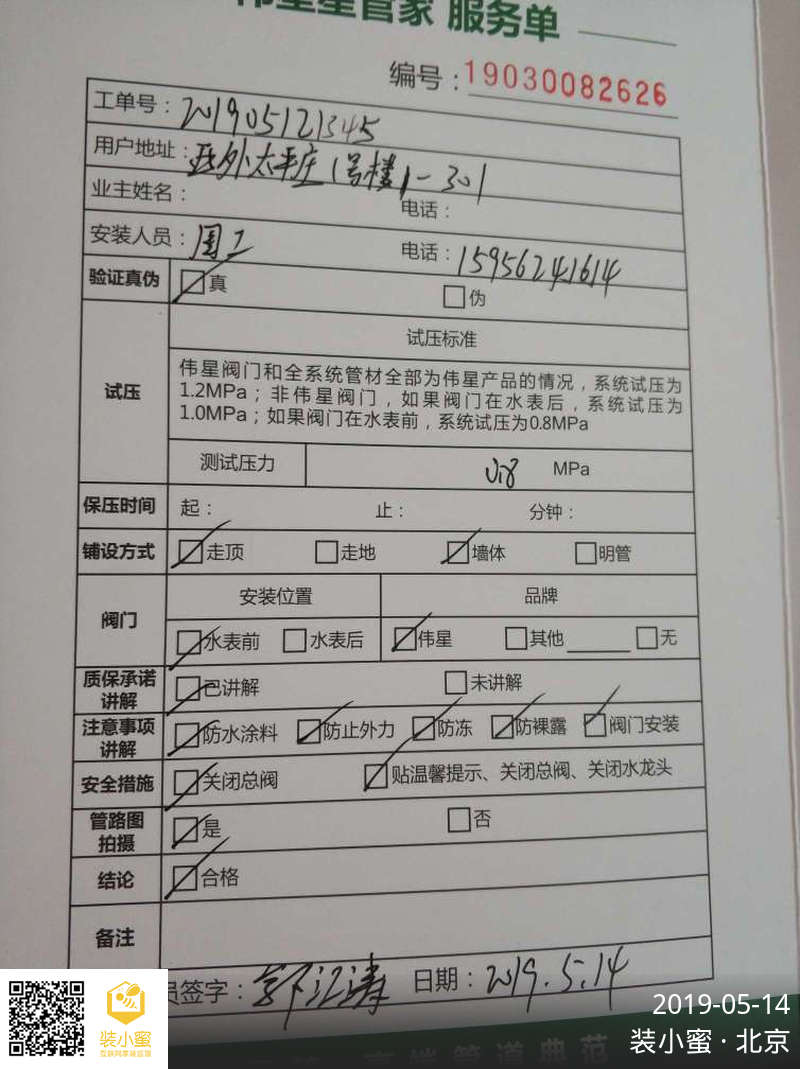 伟星星管家 服务单
编号：19030082626
工单号：201905121345
用户地址： 外太平庄1号楼1-301
业主姓名： 电话：
安装人员：周工 电话：15956241614
验证真伪 真 伪
试压 试压标准
伟星阀门和全系统管材全部为伟星产品的情况，系统试压为
1.2MPa；非伟星阀门，如果阀门在水表后，系统试压为
1.0MPa；如果阀门在水表前，系统试压为0.8MPa
测试压力 0.8 MPa
保压时间 起： 止： 分钟：
铺设方式 走顶 走地 墙体 明管
阀门 安装位置 品牌
水表前 水表后 伟星 其他 无
质保承诺
讲解 已讲解 未讲解
注意事项
讲解 防水涂料 防止外力 防冻 防裸露 阀门安装
安全措施 关闭总阀 贴温馨提示、关闭总阀、关闭水龙头
管路图
拍摄 是 否
结论 合格
备注
员签字： 江涛 日期：2019.5.14
高端管道典范
装小蜜
互联网家装监理
2019-05-14
装小蜜·北京